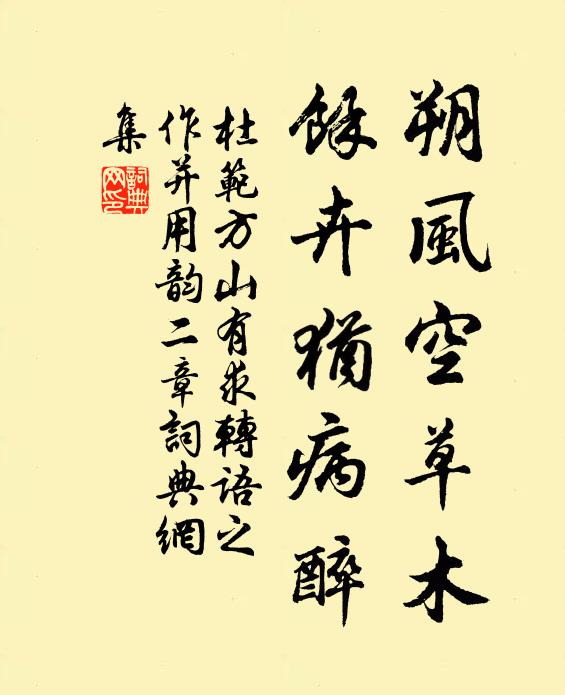 朔風空草木
餘卉猶病醉
杜範方山有求轉語之
作并用韵二章詞典網
集
詞典
网印